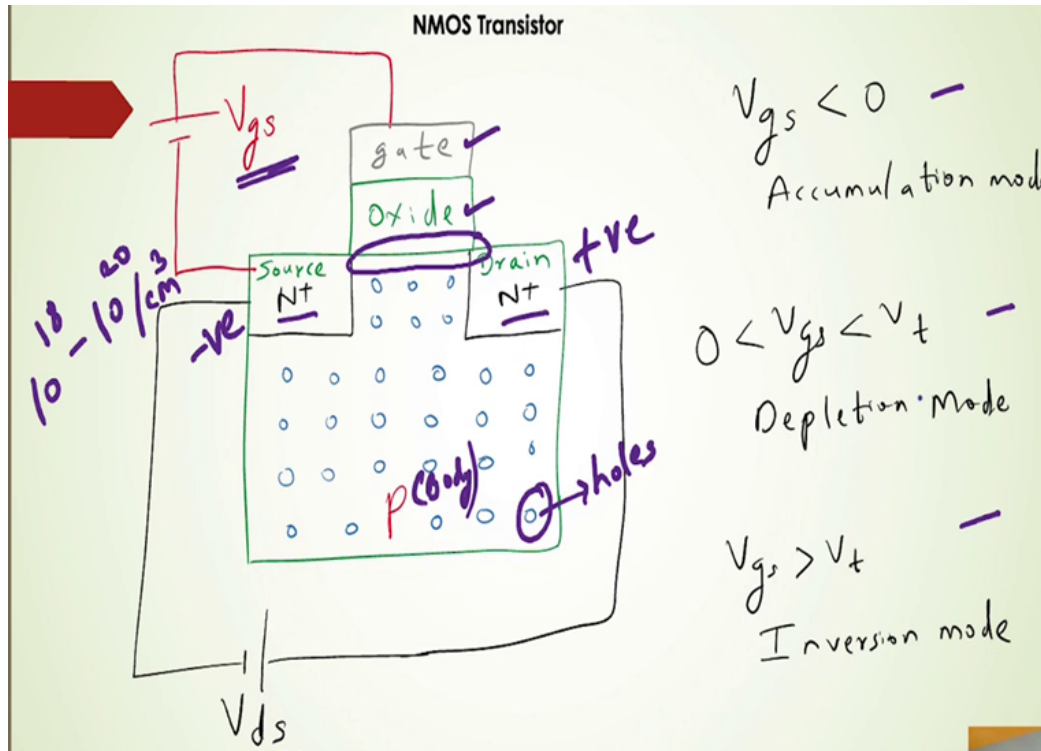 NMOS Transistor
Vgs
gate
Oxide
Source
N+
Drain
N+
+ve
-ve
10^18 - 10^20/cm^3
P (Body)
holes
Vds
Vgs < 0 -
Accumulation mod
0 < Vgs < Vt -
Depletion Mode
Vgs > Vt -
Inversion mode